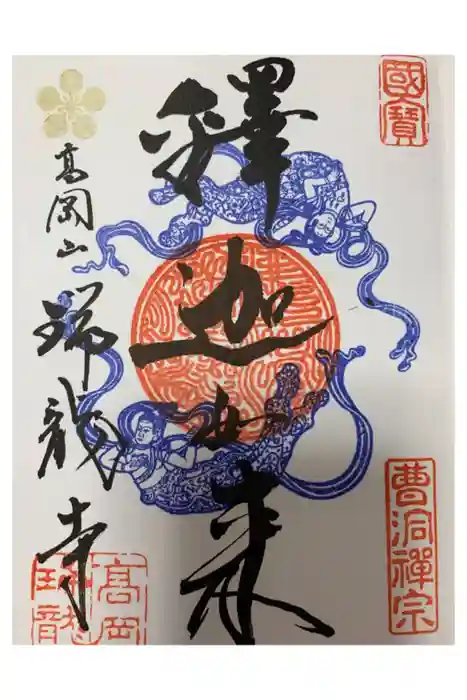 國寶
曹洞禪宗
釋迦如来
高岡山
瑞龍寺
高岡
瑞龍